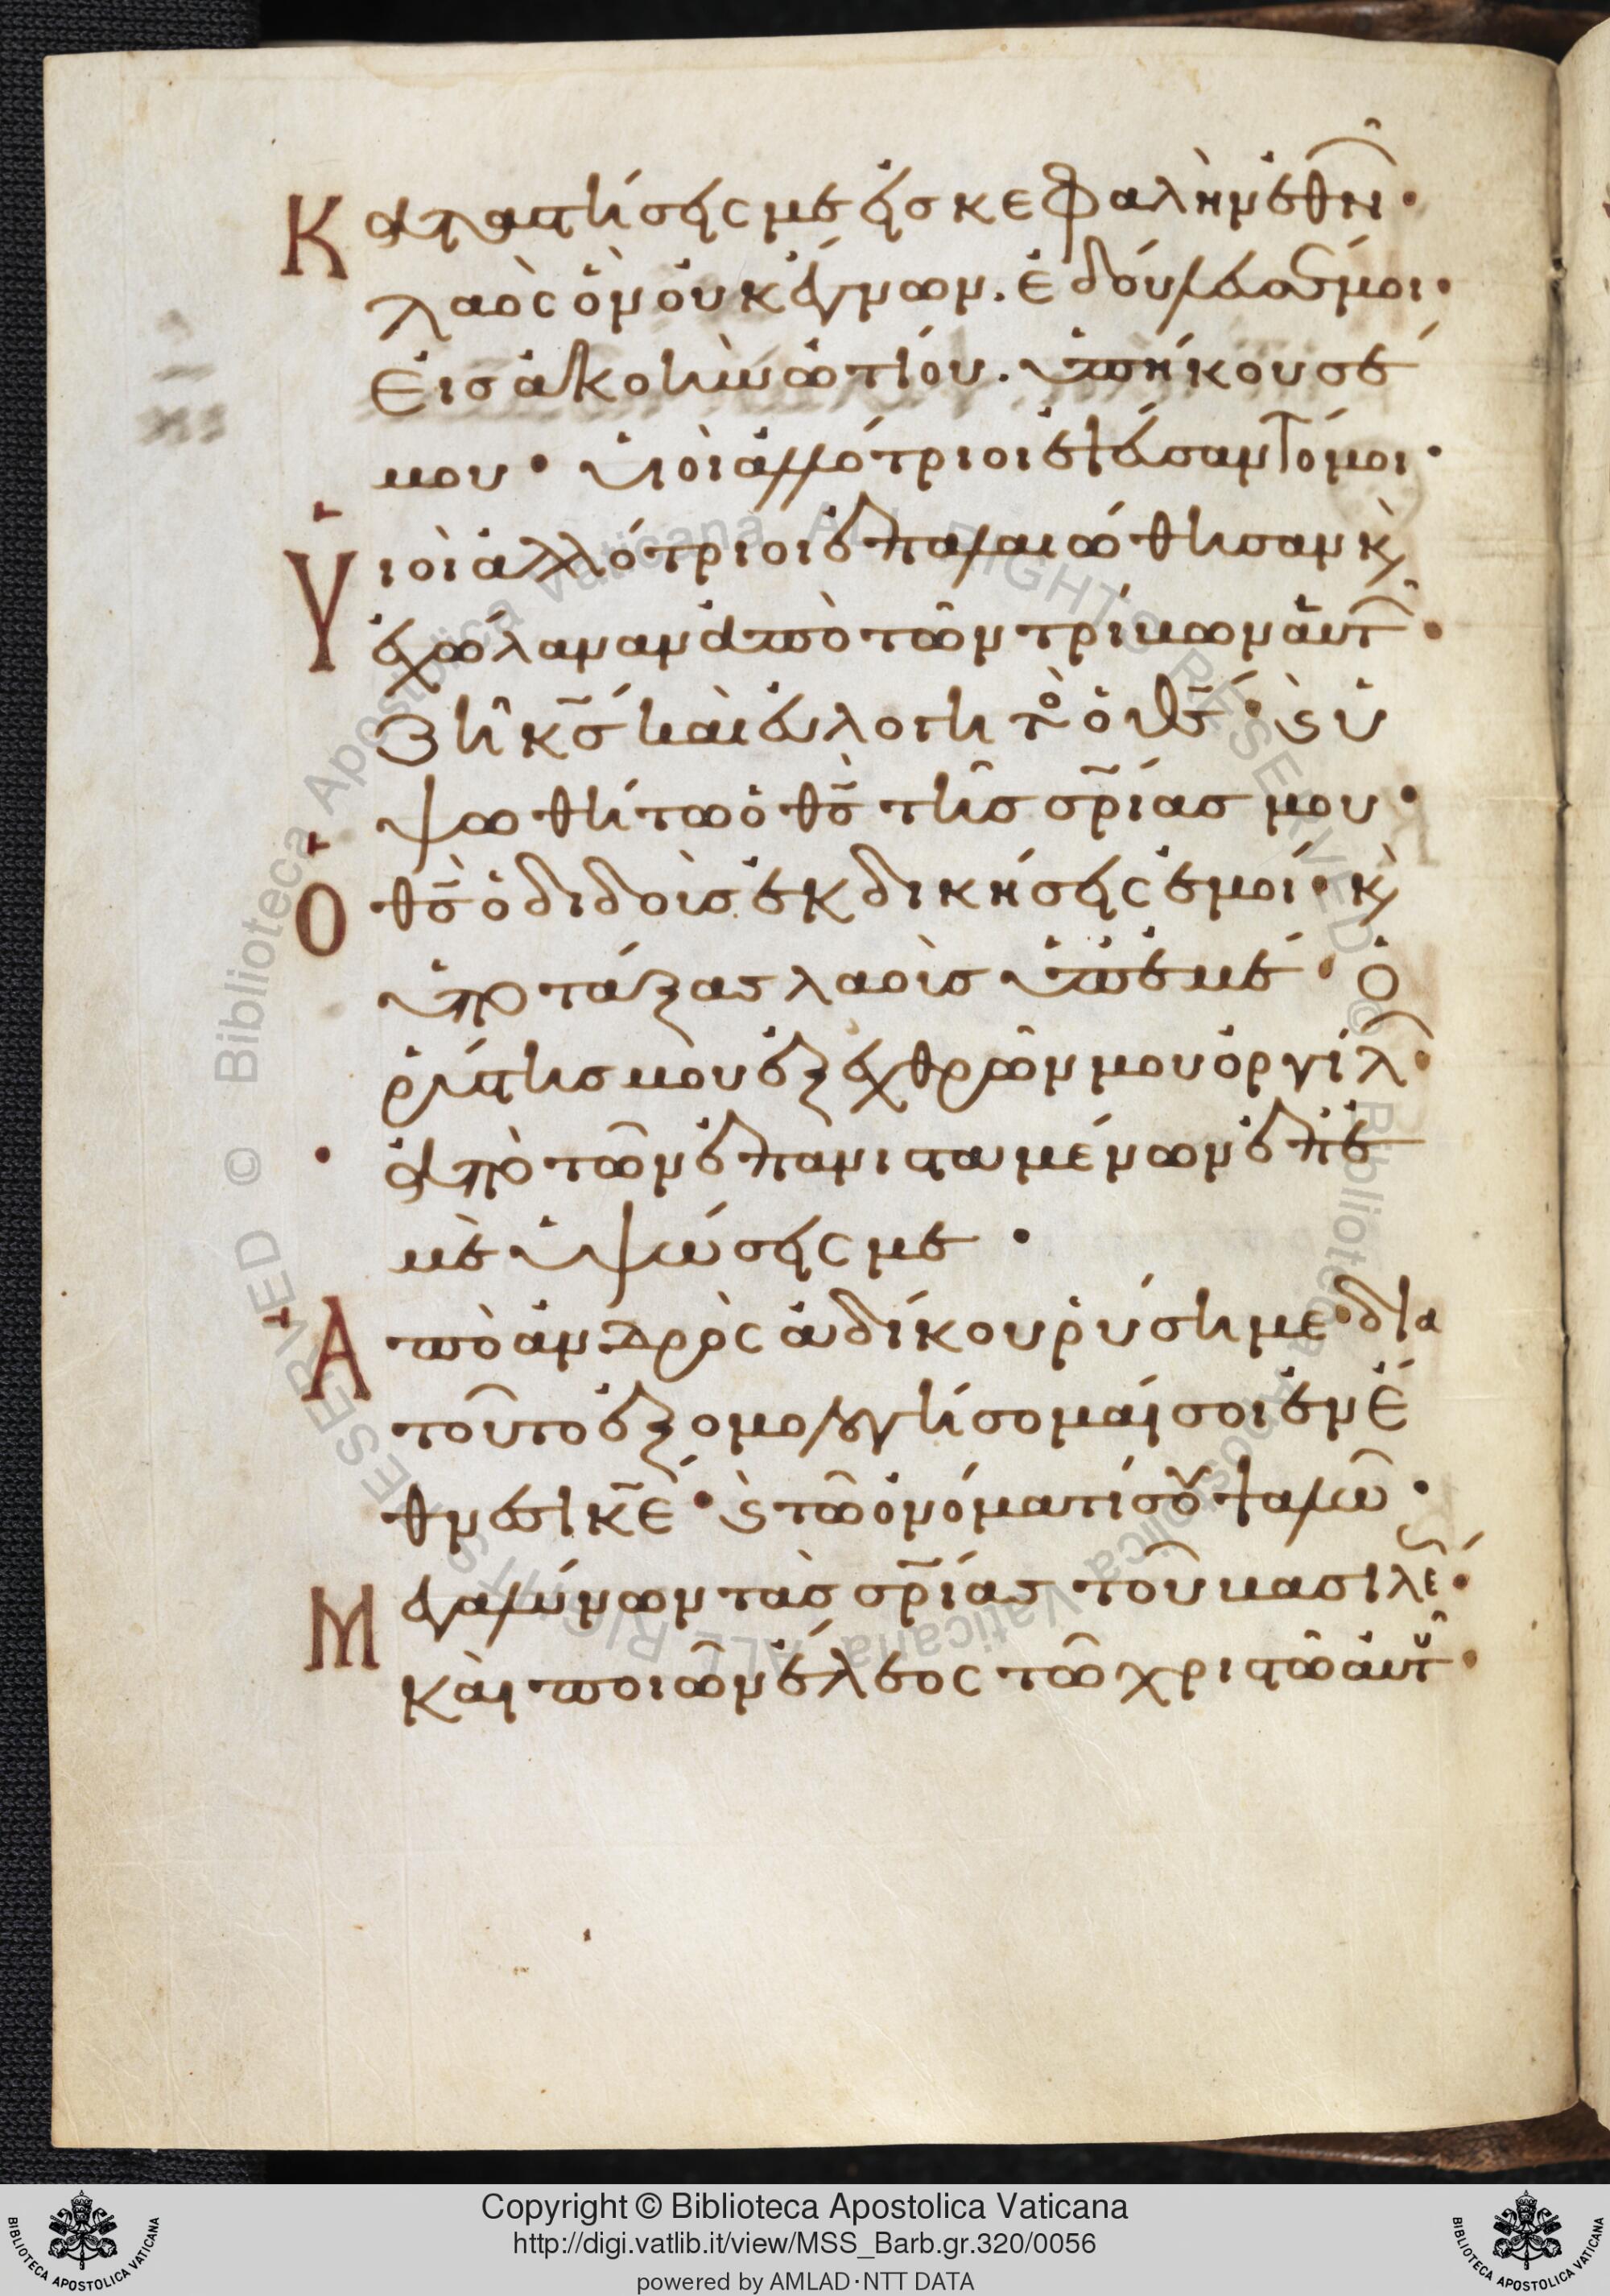 Καταστήσεις με εἰς κεφαλὴν ἐθνῶ̑·
λαὸς ὃν οὐκ ἔγνων. ἐδούλευσέ μοι·
Εἰς ἀκοὴν ὠτίου. ὑπήκουσέ
μου· υἱοὶ ἀλλότριοι ἐψεύσαντό μοι·
Υἱοὶ ἀλλότριοι ἐπαλαιώθησαν κ̀
ἐχώλαναν ἀπὸ τῶν τρίβων αὐτ͂·
Ζῆ κ̄σ́ καὶ εὐλογητὸ ὁ θ̄ς· ϛ̀ ὑ
ψωθήτω ὁ θ̄ς τῆς σ̄ρίας μου·
Ὁ θ̄ς ὁ διδοὺς ἐκδικήσεις ἐμοί· κ̀
ὑποτάξας λαοὺς ὑπ' ἐμέ· ὁ
ῥύστης μου ἐξ ἐχθρῶν μου ὀργίλ͂·
ἀπὸ τῶν ἐπανισταμένων ἐπ' ἐ
μὲ ὑψώσεις με·
Ἀπὸ ἀνδρὸς ἀδίκου ῥύσῃ με· διὰ
τοῦτο ἐξομολογήσομαί σοι ἐν ἔ
θνεσι κ̄ε· ϛ̀ τῶ ὀνόματί σου ψαλῶ·
Μεγαλύνων τὰς σ̄ρίας τοῦ βασιλέ͂·
καὶ ποιῶν ἔλεος τῶ χριστῶ αὐτȣ͂·
Copyright © Biblioteca Apostolica Vaticana
http://digi.vatlib.it/view/MSS_Barb.gr.320/0056
powered by AMLAD·NTT DATA